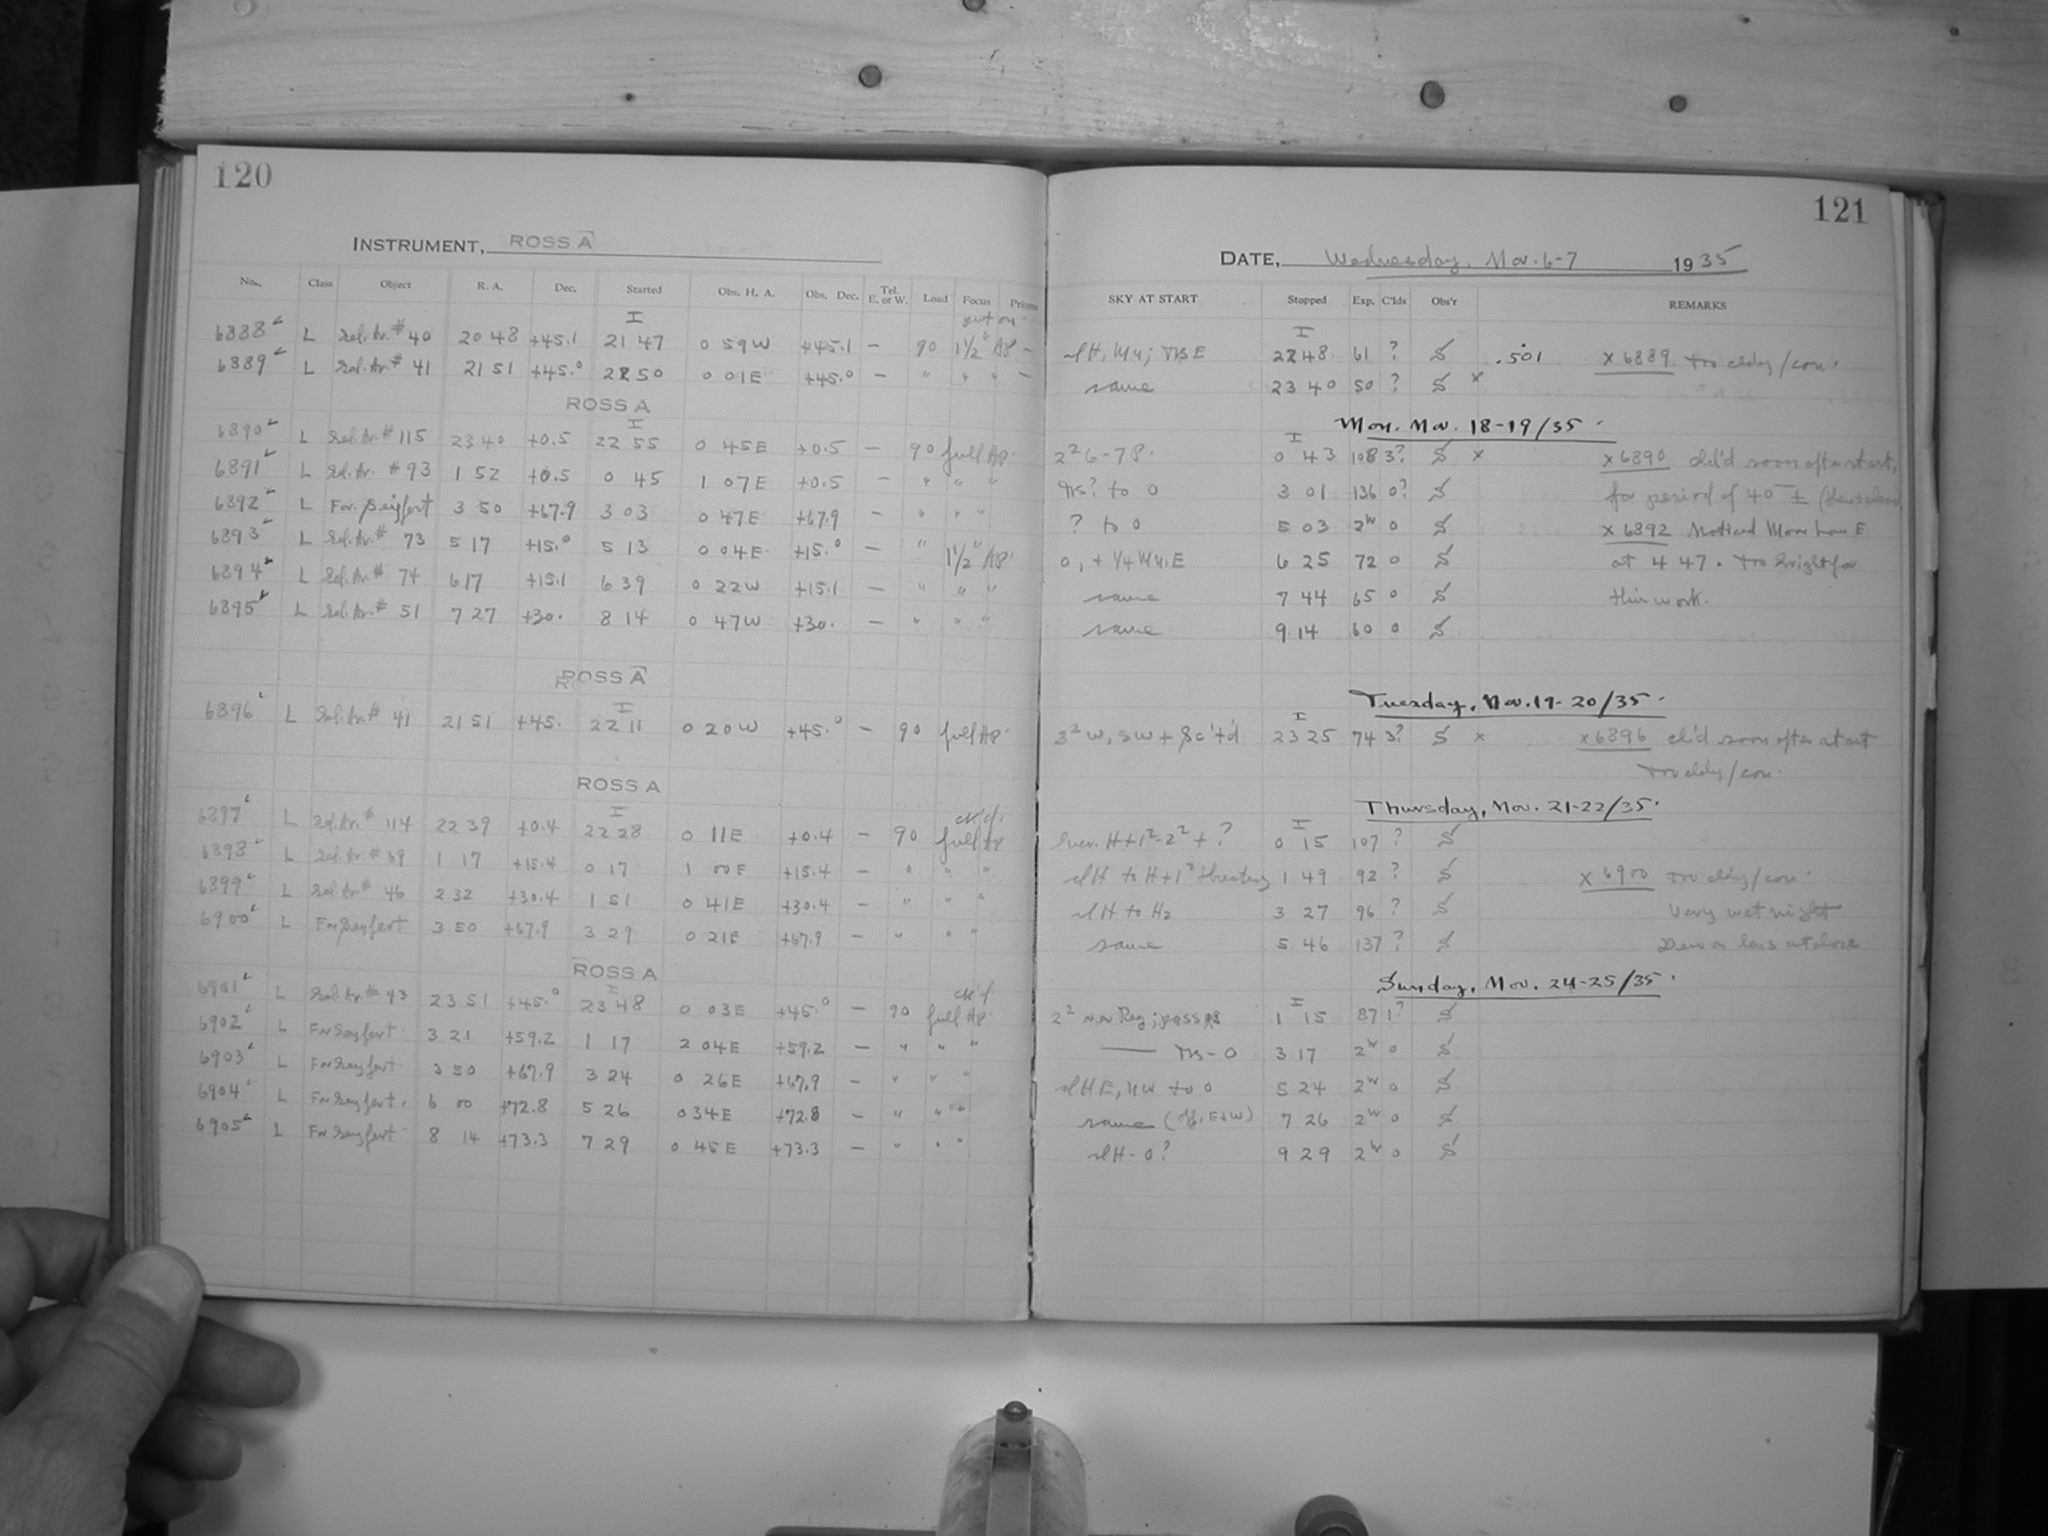 120
INSTRUMENT, ROSS A
No. Class Object R. A. Dec. Started Obs. H. A. Obs. Dec. Tel. E. or W. Load Focus Prisms
I
6888 L Sel. Ar. # 40 20 48 +45.1 21 47 0 59 W +45.1 — 90 1½" AP —
6889 L Sel. Ar. # 41 21 51 +45.0 22 50 0 01 E +45.0 — " " " —
ROSS A
I
6890 L Sel. Ar. # 115 23 40 +0.5 22 55 0 45 E +0.5 — 90 full Ap.
6891 L Sel. Ar. # 93 1 52 +0.5 0 45 1 07 E +0.5 — " " "
6892 L For Seyfert 3 50 +67.9 3 03 0 47 E +67.9 — " " "
6893 L Sel. Ar. # 73 5 17 +15.0 5 13 0 04 E +15.0 — " 1½" AP.
6894 L Sel. Ar. # 74 6 17 +15.1 6 39 0 22 W +15.1 — " " "
6895 L Sel. Ar. # 51 7 27 +30. 8 14 0 47 W +30. — " " "
ROSS A
I
6896 L Sel. Ar. # 41 21 51 +45. 22 11 0 20 W +45.0 — 90 full Ap.
ROSS A
I ck'd.
6897 L Sel. Ar. # 114 22 39 +0.4 22 28 0 11 E +0.4 — 90 full Ap
6898 L Sel. Ar. # 69 1 17 +15.4 0 17 1 00 E +15.4 — " " "
6899 L Sel. Ar. # 46 2 32 +30.4 1 51 0 41 E +30.4 — " " "
6900 L For Seyfert 3 50 +67.9 3 29 0 21 E +67.9 — " " "
ROSS A
I ck'd
6901 L Sel. Ar. # 43 23 51 +45.0 23 48 0 03 E +45.0 — 90 full Ap.
6902 L For Seyfert. 3 21 +59.2 1 17 2 04 E +59.2 — " " "
6903 L For Seyfert. 3 50 +67.9 3 24 0 26 E +67.9 — " " "
6904 L For Seyfert. 6 00 +72.8 5 26 0 34 E +72.8 — " " "
6905 L For Seyfert. 8 14 +73.3 7 29 0 45 E +73.3 — " " "
121
DATE, Wednesday, Nov. 6-7 1935
SKY AT START Stopped Exp. C'lds Obs'r REMARKS
I
22 48 61 ? S .501 x 6889 Too cldy/con.
same 23 40 50 ? S x
Mon. Nov. 18-19/35.
I
2² 6-7 P. 0 43 108 3? S x x 6890 cld'd soon after start,
? to 0 3 01 136 0? S for period of 40ᵐ ±
? to 0 5 03 2ʰ 0 S x 6892 Noticed Moon low E
0, + ¼ Mn. E 6 25 72 0 S at 4 47. Too bright for
same 7 44 65 0 S this work.
same 9 14 60 0 S
Tuesday, Nov. 19-20/35.
I
3² W, SW + Sc't'd 23 25 74 3? S x x 6896 cl'd soon after start
Too cldy/con.
Thursday, Nov. 21-22/35.
I
H+1²-2² + ? 0 15 107 ? S
sl H to H+1² threatens 1 49 92 ? S x 6900 Too cldy/con.
sl H to H2 3 27 96 ? S Very wet night
same 5 46 137 ? S Dew on lens at close
Sunday, Nov. 24-25/35.
I
2² 1 15 87 1? S
— 3 17 2ʰ 0 S
sl H E, NW to 0 5 24 2ʰ 0 S
same (off. E+W) 7 26 2ʰ 0 S
sl H - 0? 9 29 2ʰ 0 S